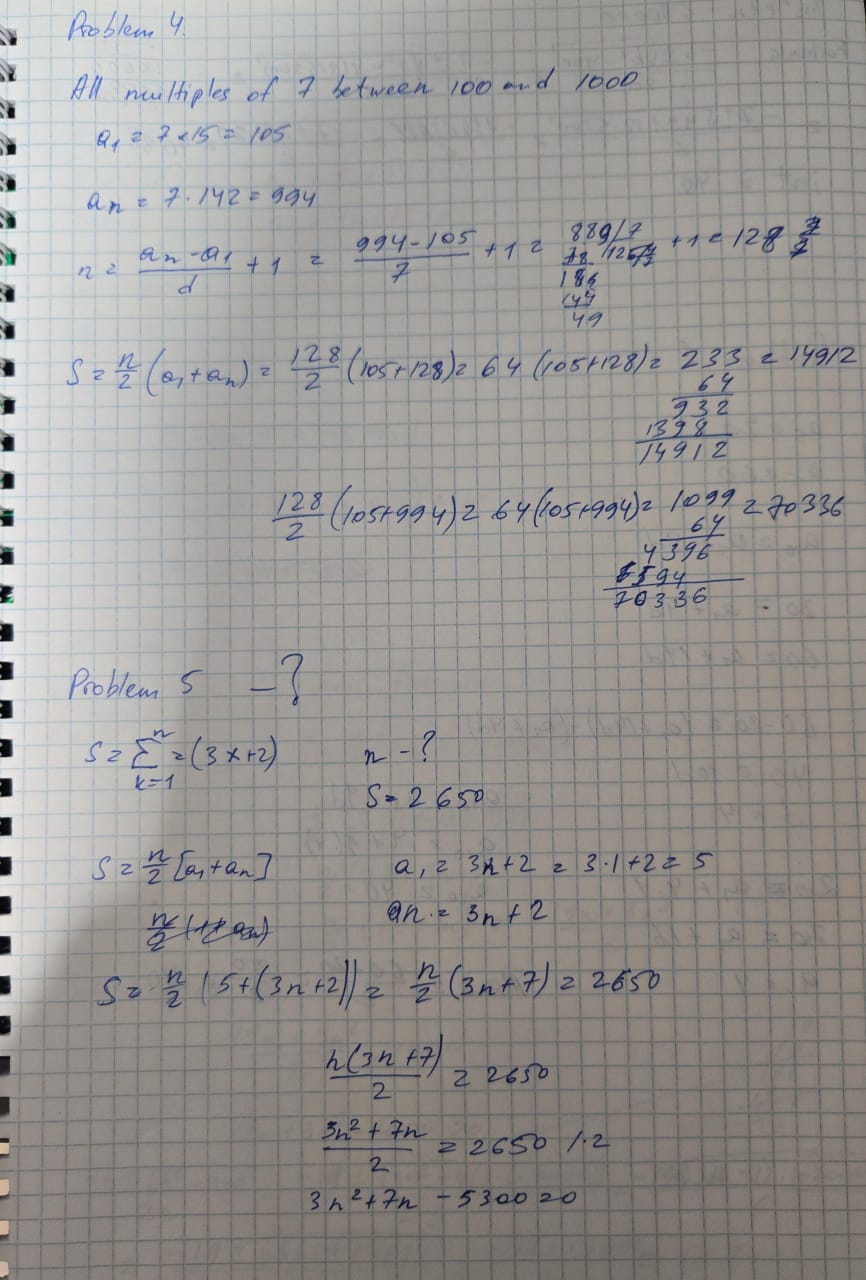 Problem 4.
All multiples of 7 between 100 and 1000
a₁ = 7×15 = 105
aₙ = 7·142 = 994
n = (aₙ - a₁)/d + 1 = (994-105)/7 + 1 = 889/7 + 1 = 128
186
144
49
S = n/2 (a₁+aₙ) = 128/2 (105+128) = 64 (105+128) = 233 = 14912
64
932
1398
14912
128/2 (105+994) = 64 (105+994) = 1099 = 70336
64
4396
6594
70336
Problem 5 -?
S = Σ = (3x+2) n - ?
n
k=1
S = 2650
S = n/2 [a₁+aₙ] a₁ = 3n+2 = 3·1+2 = 5
aₙ = 3n+2
S = n/2 (5+(3n+2)) = n/2 (3n+7) = 2650
n(3n+7)/2 = 2650
(3n²+7n)/2 = 2650 /·2
3n²+7n - 5300 = 0